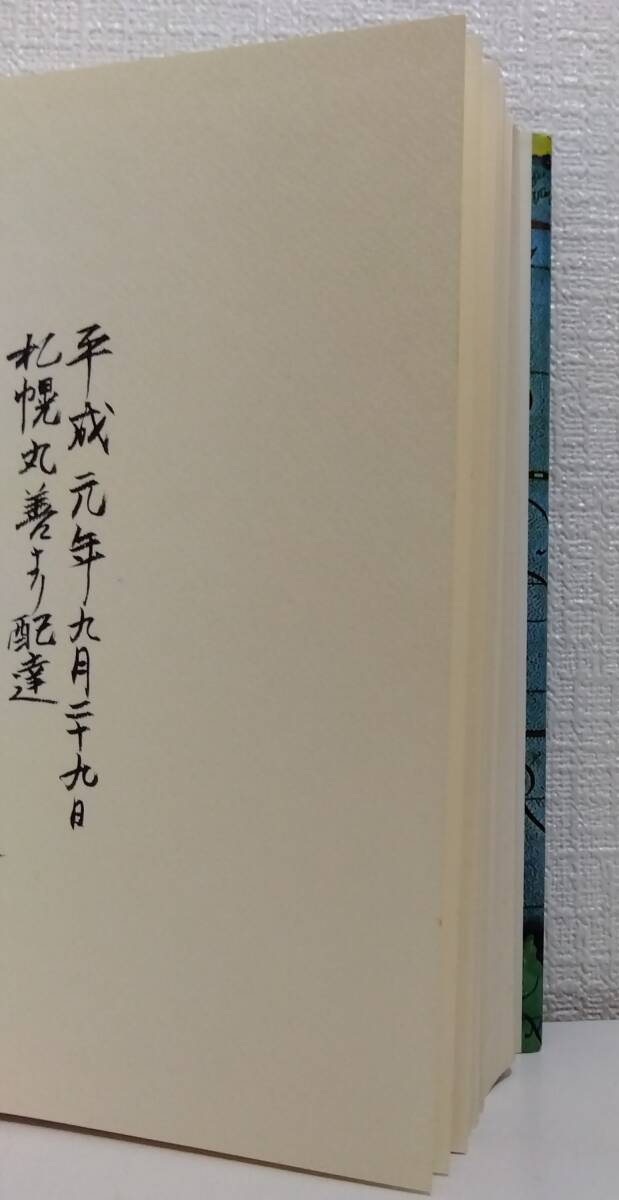 平成元年九月二十九日
札幌丸善より配達